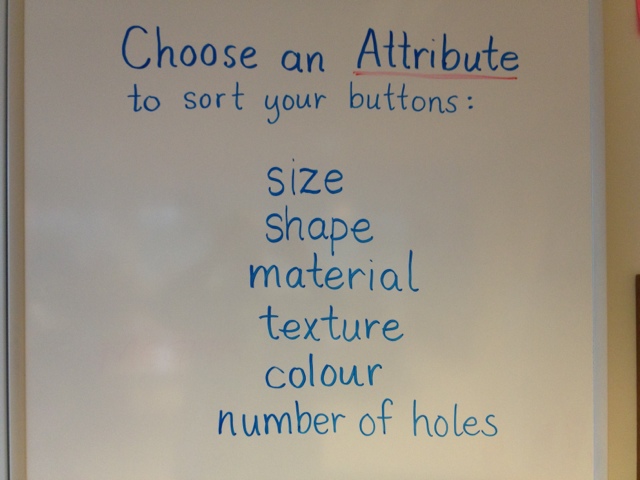 Choose an Attribute
to sort your buttons:
size
shape
material
texture
colour
number of holes